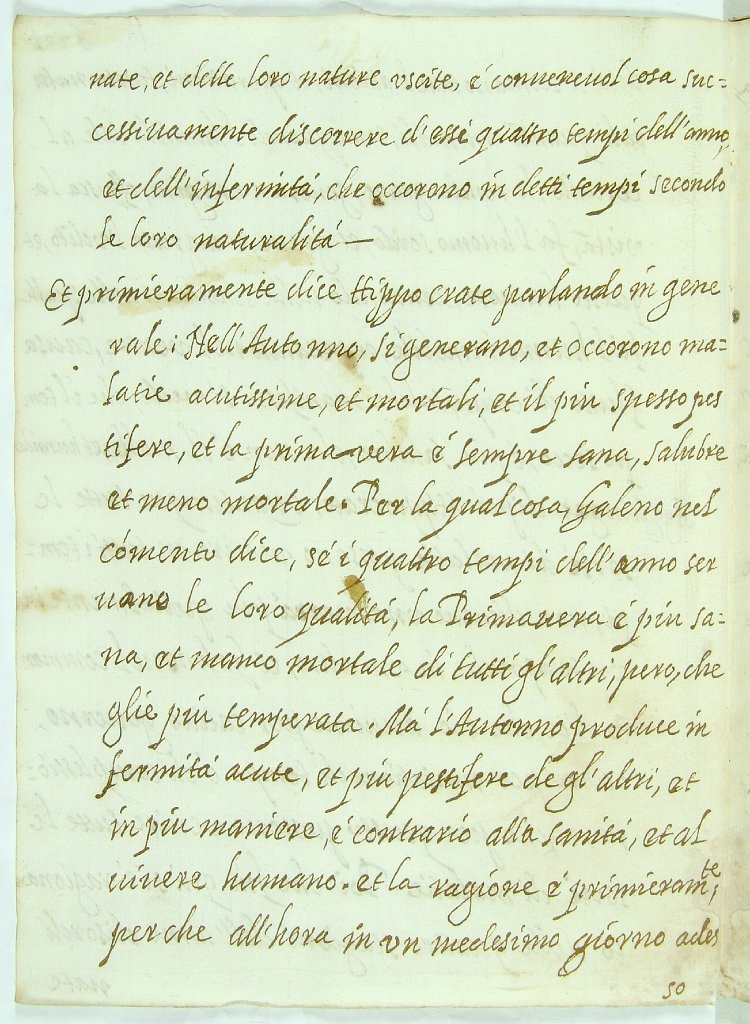 nate, et delle loro nature vscite, é conueneuol cosa suc=
cessiuamente discorrere d'essi quattro tempi dell'anno,
et dell'infermitá, che occorono in detti tempi secondo
le loro naturalitá —
Et primieramente dice Hippocrate parlando in gene
rale: Nell'Autonno, si generano, et occorono ma=
latie acutissime, et mortali, et il piu spesso pes
tifere, et la prima vera é sempre sana, salubre
et meno mortale. Per la qual cosa, Galeno nel
cómento dice, sé i quattro tempi dell'anno ser
uano le loro qualitá, la Primauera é piu sa=
na, et manco mortale di tutti gl'altri, pero, che
glie piu temperata. Má l'Autonno produce in
fermitá acute, et piu pestifere degl'altri, et
in piu maniere, é contrario alla sanitá, et al
uiuere humano. et la ragione é primieramte,
perche all'hora in vn medesimo giorno ades
so